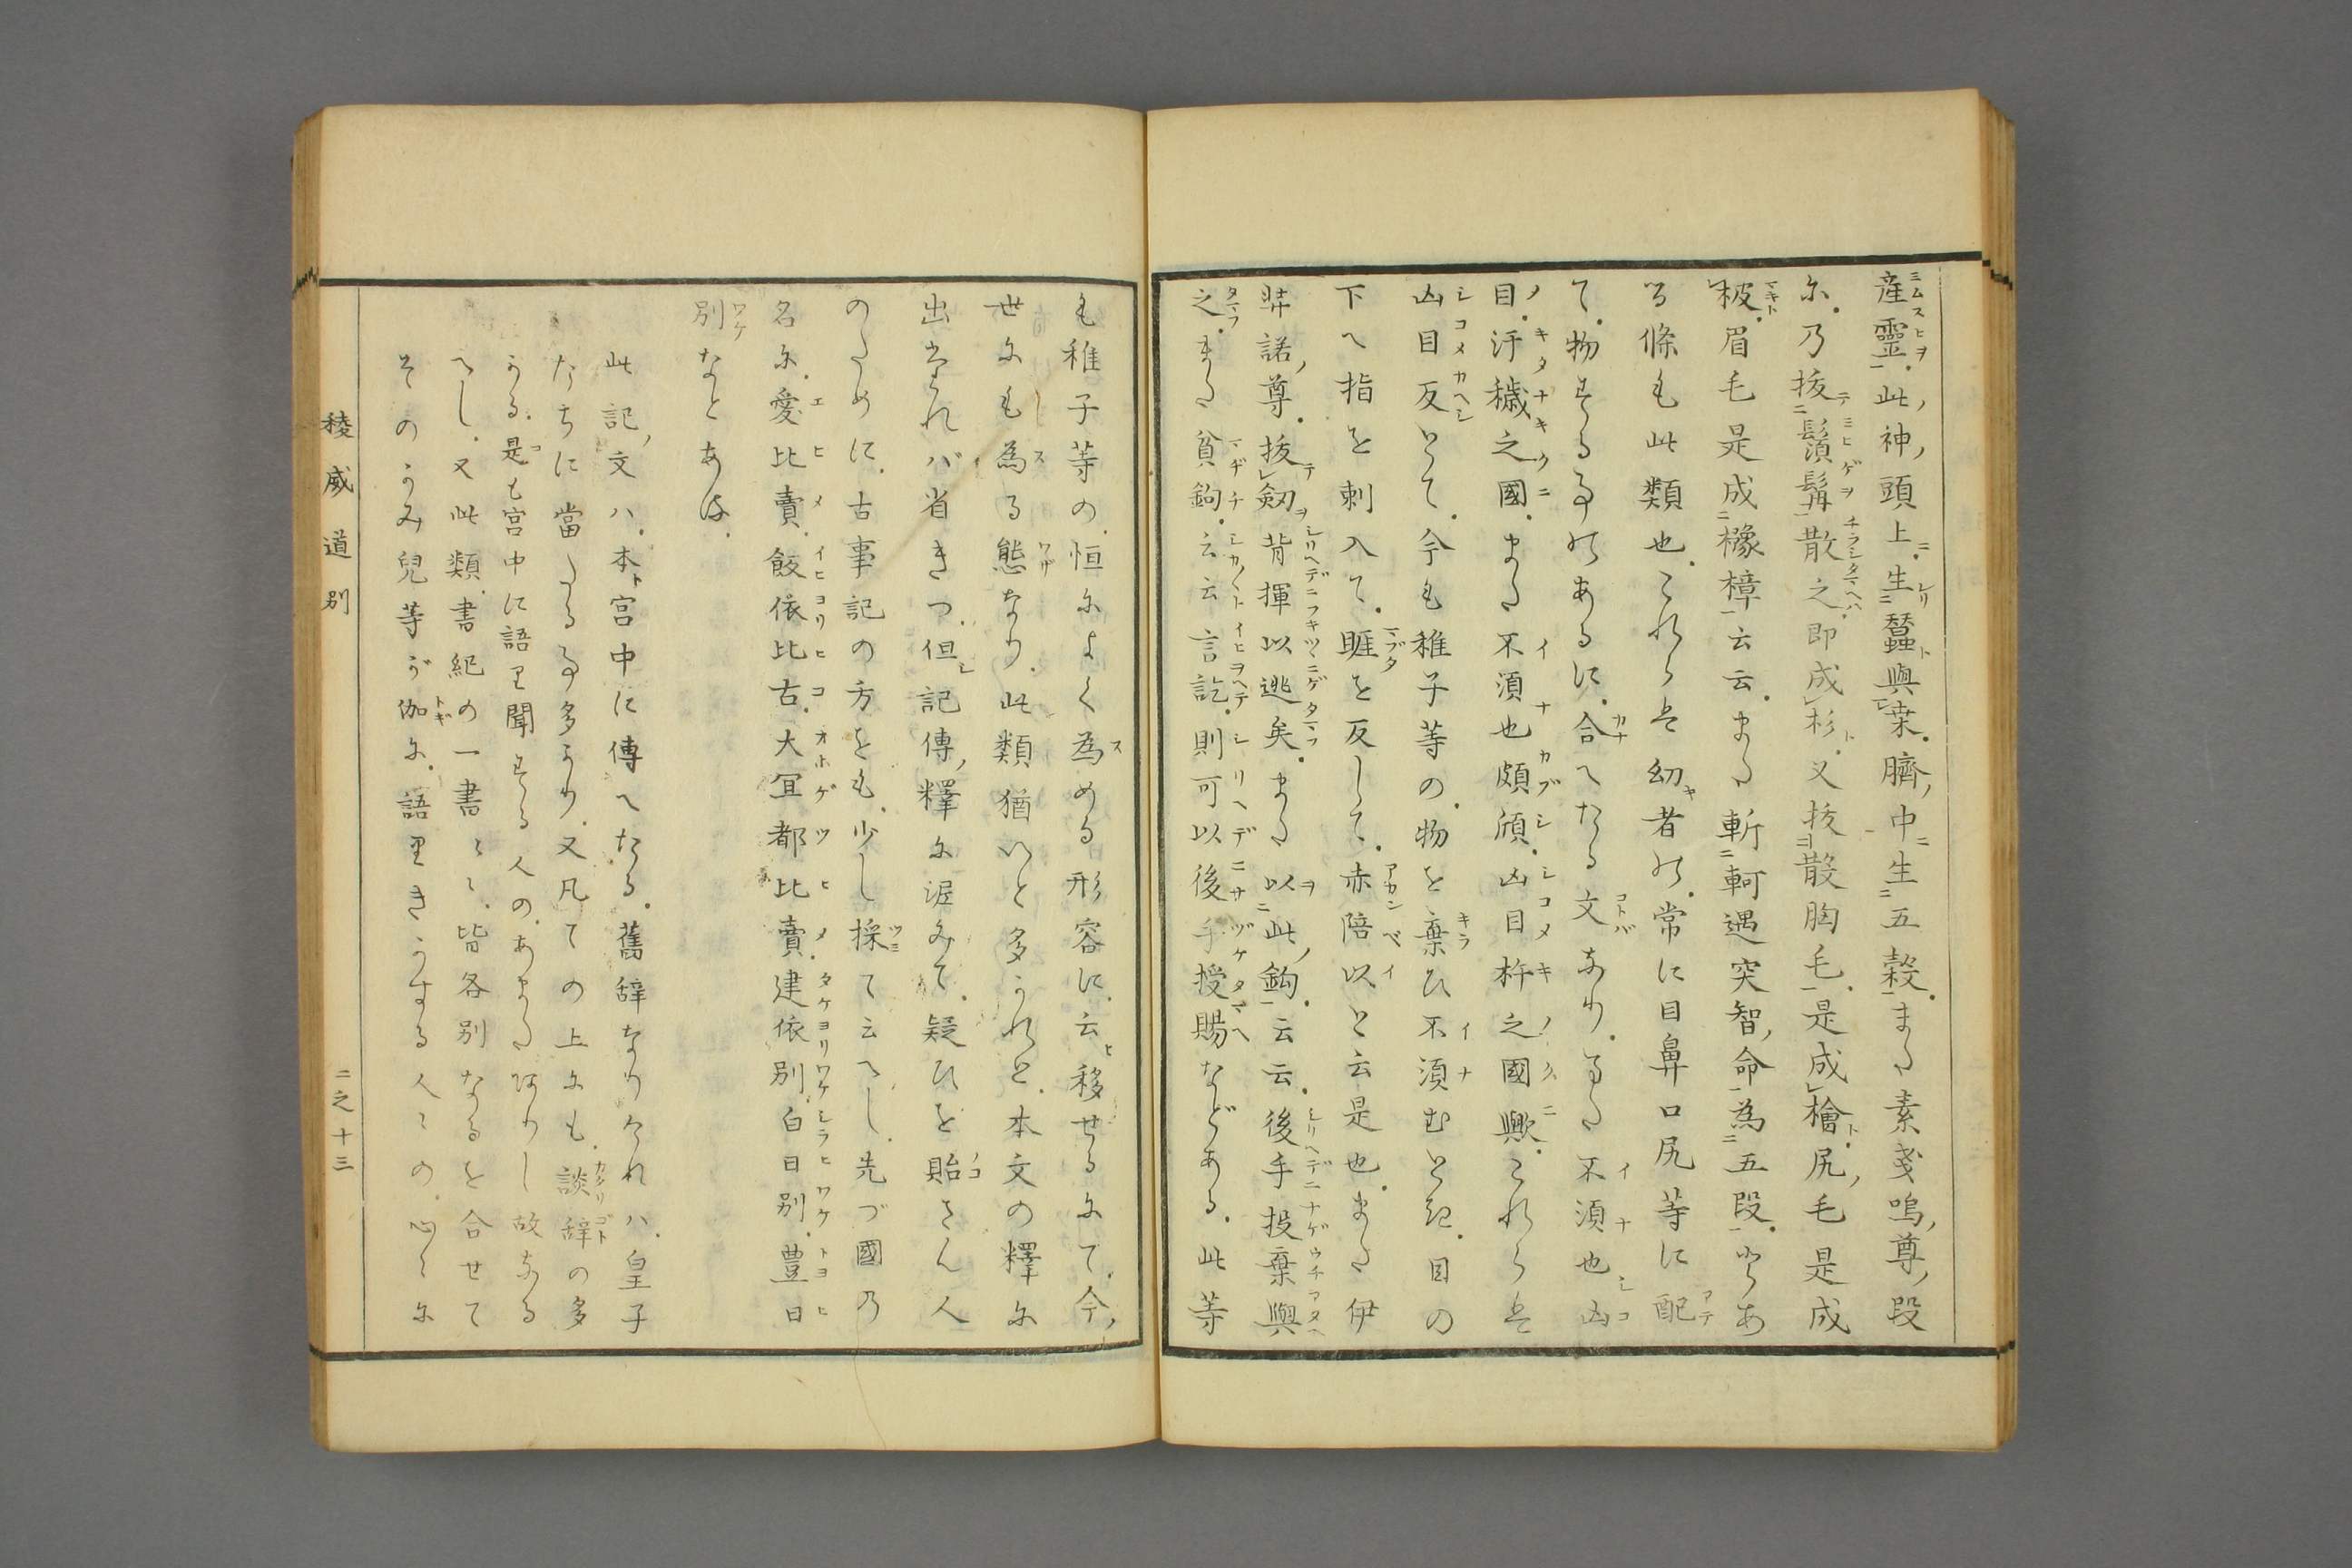 産靈此神頭上生蠶與桒臍中生五穀まと素戔嗚尊段
尓乃抜鬚髯散之即成杉又抜散胸毛是成檜尻毛是成
柀眉毛是成櫲樟云云まと斬軻遇突智命為五段とあ
る條も此類也これらは幼者の常に目鼻口尻等に配
て物する事のあるに合へたる文なりまた不須也凶
目汙穢之國また不須也頗傾凶目杵之國歟これらは
凶目反とて今も稚子等の物を棄ひ不須むとき目の
下へ指を刺入て睚を反して赤陪以と云是也また伊
弉諾尊抜劔背揮以逃矣また以此鈎云云後手投棄與
之また貧鉤云云言訖則可以後手授賜などある此等
も稚子等の恒によく為める形容に云移せるにて今
世にも為る態なり此類猶いと多かれと本文の釋に
出すれバ省きつ但記傳釋に泥みて疑ひを貽さん人
のために古事記の方をも少し採て云へし先づ國乃
名に愛比賣飯依比古大宜都比賣建依別白日別豊日
別なとあは
此記文ハ本宮中に傳へたる舊辞なりけれハ皇子
たちに當たる事多かり又凡ての上にも談辞の多
かる是も宮中に語り聞する人のあまたありし故なる
へし又此類書紀の一書〻〻皆各別なるを合せて
そのかみ兒等が伽に語りきかする人〻の心〻に
稜威道別
二之十三